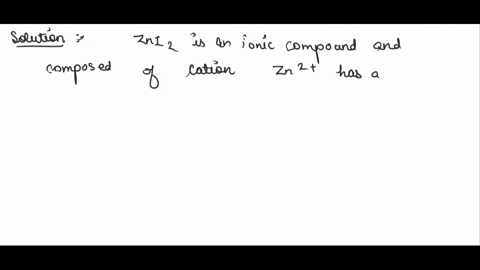 Solution :- ZnI2 is an ionic compound and
composed of cation Zn2+ has a